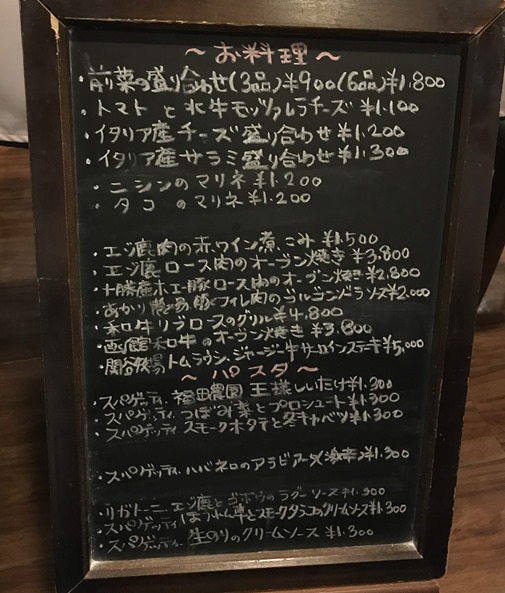 ～お料理～
・前菜の盛り合わせ(3品)¥900(6品)¥1.800
・トマトと水牛モッツァレラチーズ ¥1.100
・イタリア産チーズ盛り合わせ¥1.200
・イタリア産サラミ盛り合わせ¥1.300
・ニシンのマリネ¥1.200
・タコのマリネ¥1.200
・エゾ鹿肉の赤ワイン煮こみ¥1.500
・エゾ鹿ロース肉のオーブン焼き¥3.800
・十勝産ホエー豚ロース肉のオーブン焼き¥2.800
・フィレ肉のゴルゴンゾーラソース¥2.000
・和牛リブロースのグリル¥4.800
・函館和牛のオーブン焼き¥3.800
・関谷牧場トムラウシ、ジャージー牛サーロインステーキ¥5,000
～パスタ～
・スパゲッティ 福田農園 王様しいたけ¥1.300
・スパゲッティ つぼみ菜とプロシュート¥1.300
・スパゲッティ スモークホタテと冬キャベツ¥1.300
・スパゲッティ ハバネロのアラビアータ激辛¥1.300
・リガトーニ エゾ鹿とゴボウのラグーソース¥1.300
・スパゲッティ ほうれん草とスモークタラコのクリームソース¥1.300
・スパゲッティ 生のりのクリームソース ¥1.300